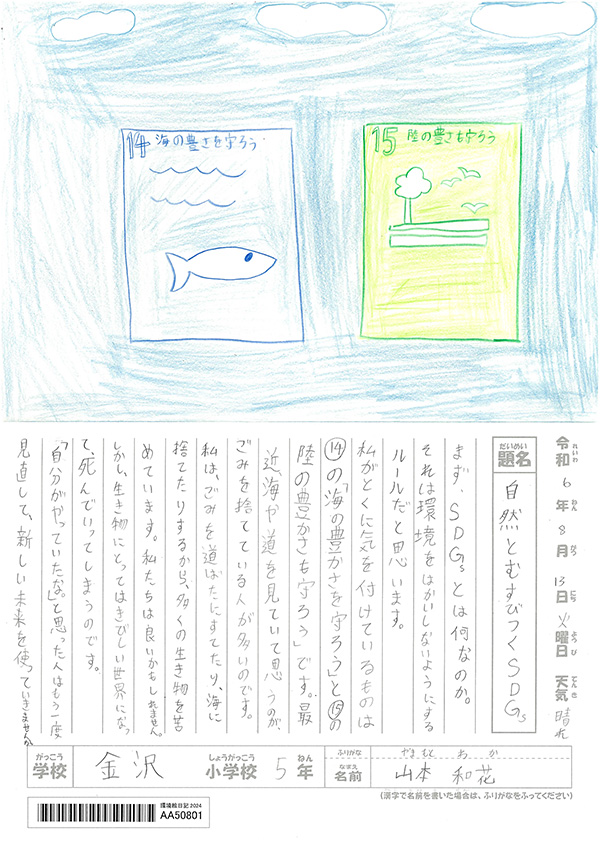 14 海の豊さを守ろう
15 陸の豊さも守ろう
令和6年8月13日火曜日 天気 晴れ
れいわ ねん がつ にち ようび てんき
だいめい
題名
自然とむすびつくSDGs
まず、SDGsとは何なのか。
それは環境をはかいしないようにする
ルールだと思います。
私がとくに気を付けているものは
⑭の「海の豊かさを守ろう」と⑮の
陸の豊かさも守ろう」です。最
近、海や道を見ていて思うのが、
ごみを捨てている人が多いのです。
私は、ごみを道ばたにすてたり、海に
捨てたりするから、多くの生き物を苦
めています。私たちは良いかもしれません。
しかし、生き物にとってはきびしい世界になっ
て、死んでいってしまうのです。
「自分がやっていたな。」と思った人はもう一度
見直して、新しい未来を使っていきませんか
がっこう
学校
金沢
しょうがっこう
小学校
5
ねん
年
ふりがな
やまもと わか
なまえ
名前
山本 和花
(漢字で名前を書いた場合は、ふりがなをふってください)
環境絵日記 2024
AA50801